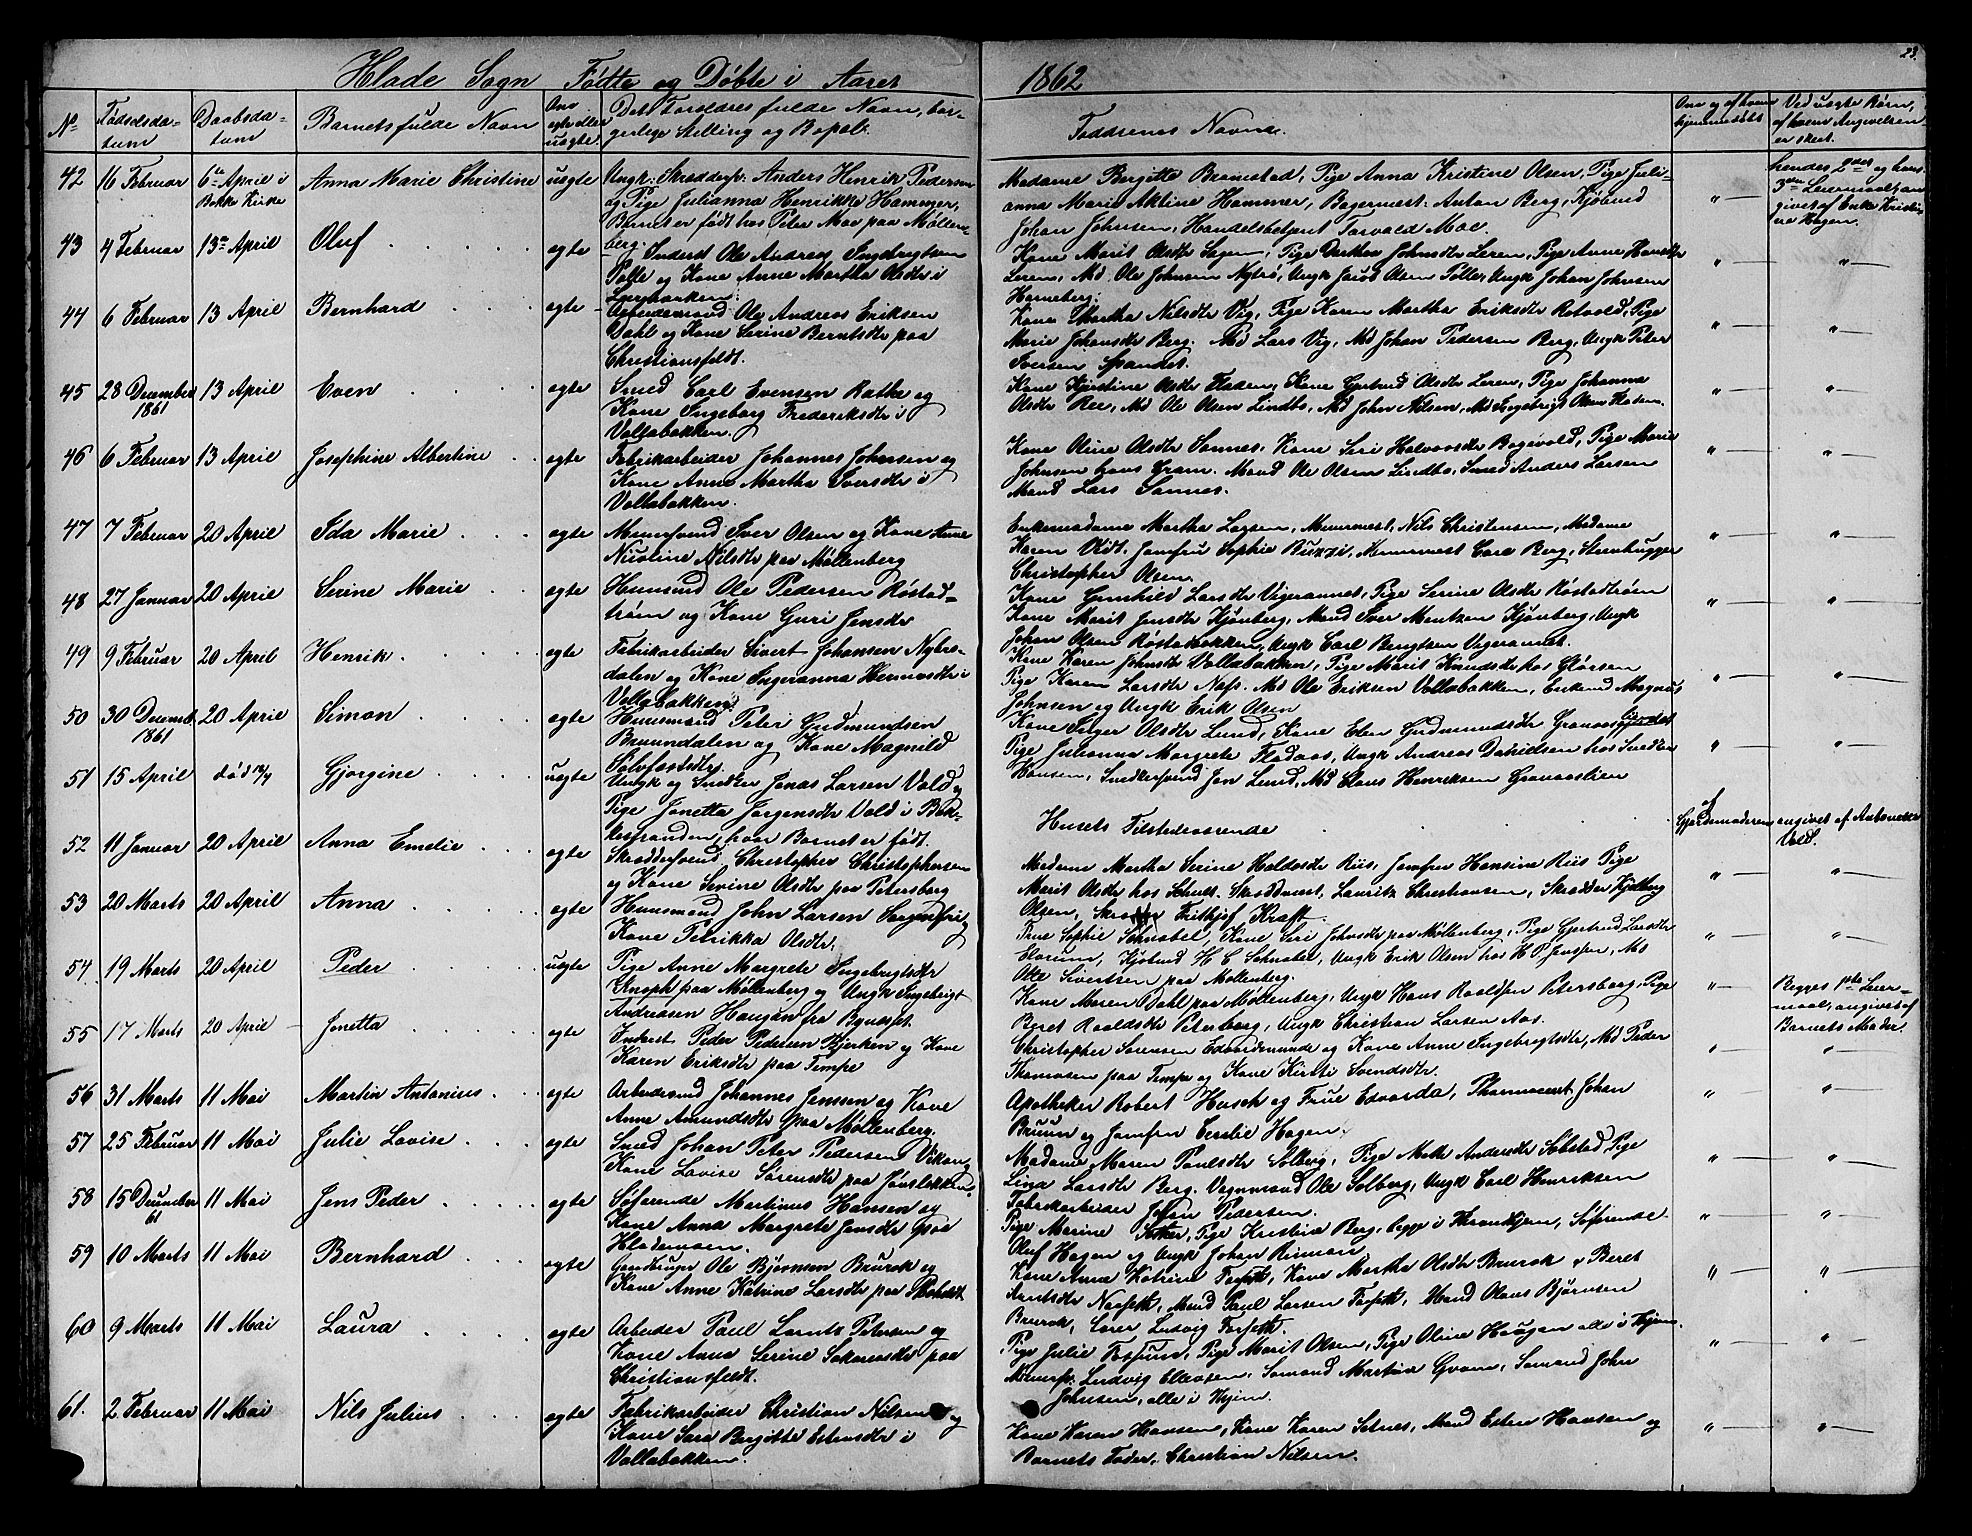 Hlade Sogn Fødte og Døbte i Aaret 1862
23.
No
Fødselsda-
tum
Daabsda-
tum
Barnets fulde Navn
Om
egte eller
uegte.
Det Forældres fulde Navn, bor-
gerlige Stilling og Bopæl.
Faddernes Navne.
Om og af hvem
hjemmedøbt
Ved uegte Børn,
af hvem Angivelsen
er skeet.
42 16 Februar 6te April i Anna Marie Christine uegte Ungk: Skræddersv: Anders Henrik Pedersen
Bakke Kirke
og Pige Julianna Henrikke Hammer,
Barnet er født hos Peter Moe paa Møllen-
berg.
Madame Birgitte Bramstad, Pige Anna Kristine Olsen, Pige Juli-
anna Marie Aktine Hammer, Bagermest. Anton Berg, Kjøbmd
Johan Johnsen, Handelsbetjent Torvald Moe.
" —
hendes 2det og hans
3die Leiermaal, an
givet af Enke Kristi
ne Hagen.
43 4 Februar 13de April Oluf egte Inderst Ole Andreas Ingebrigtsen
Tolle og Kone Anne Martha Olsdtr i
Kone Marit Olsdtr, Pige Dorthea Johnsdtr Leren, Pige Anne Hansdtr
Leren, Md Ole Johnsen Nytrø, Ungk Jacob Olsen Tolle, Ungk Johan Johnsen
Horneberg.
" — " —
44 6 Februar 13 April Bernhard egte Arbeidsmand Ole Andreas Eriksen
Dahl og Kone Serine Berntsdtr paa
Christiansfeldt.
Kone Martha Nilsdtr Vig, Pige Karen Martha Eriksdtr Rotvold, Pige
Marie Johansdtr Berg. Md Lars Vig, Md Johan Pedersen Berg, Ungk Peter
Iversen Spandet.
" — " —
45 28 December 13 April Even egte Smed Carl Evensen Rathe og
1861
Kone Ingeborg Frederiksdtr i
Vollabakken.
Kone Kjerstine Olsdtr Fladen, Kone Gjertrud Olsdtr Leren, Pige Johanna
Olsdtr Ree, Md Ole Olsen Lindbo, Md John Nilsen, Md Ingebrigt Olsen Fladen.
" — " —
46 6 Februar 13 April Josephine Albertine egte Fabrikarbeider Johannes Johnsen og
Kone Anne Martha Iversdtr i
Vollabakken.
Kone Oline Olsdtr Sannes, Kone Seri Halvorsdtr Bagevold, Pige Marie
Johnsen hans Gram. Mand Ole Olsen Lindbo, Smed Anders Larsen
Mand Lars Sannes.
" — " —
47 7 Februar 20 April Ida Marie egte Muursvend Iver Olsen og Kone Anne
Nicoline Nilsdtr paa Møllenberg
Enkemadame Martha Larsen, Muurmest. Nils Christensen, Madame
Karen Vldt, Jomfru Sophie Buzzi, Muurmest Carl Berg, Steenhugger
Christopher Olsen.
" — " —
48 27 Januar 20 April Serine Marie egte Huusmd Ole Pedersen Røstad-
trøen og Kone Guri Jensdtr
Kone Gunhild Larsdtr Vigerannes, Pige Serine Olsdtr Røstadtrøen
Kone Marit Jensdtr Kjønberg, Mand Iver Mentzen Kjønberg, Ungk
Johan Olsen Røstabakken, Ungk Carl Bengtsen Vigeramet.
" — " —
49 9 Februar 20 April Henrik egte Fabrikarbeider Sivert Johansen Nybro-
dalen og Kone Ingeranna Hermansdtr i
Vollabakken.
Kone Karen Johnsdtr Vollabakken, Pige Marit Knudsdtr hos Gløersen
Pige Karen Larsdtr Næss. Md Ole Eriksen Vollabakken, Enkemd Magnus
Johnsen og Ungk Erik Olsen
" — " —
50 30 Decemb. 20 April Simon egte Huusmand Peter Gudmundsen
1861
Bruundalen og Kone Magnild
Kone Inger Olsdtr Lund, Kone Elen Gudmundsdtr Granaas
Pige Julianna Margrete Fladaas, Ungk Andreas Davidsen hos Snedker
Hansen, Snedkersvend Jon Lund, Md Claus Henriksen Granaaslien
" — " —
51 15 April død Gjorgine uegte Ungk og Snedker Jonas Larsen Vold og
Pige Jonetta Jørgensdtr Vold i Bak-
kestranden, hvor Barnet er født.
Husets Tilstedeværende
af
Gjordemoderen
angivet af Antonette
Vold.
52 11 Januar 20 April Anna Emelie egte Skræddersvend Christopher Christophersen
og Kone Serine Olsdtr paa Petersberg
Madame Martha Serine Holdsdtr Riis, Jomfru Hansine Riis Pige
Marit Olsdtr hos Schult. Skræddmst. Lauritz Christiansen, Skrædder Kjelberg
Olsen, Skrædder Frithjof Kraft.
" — " —
53 20 Marts 20 April Anna egte Huusmand John Larsen Sorgenfri og
Kone Petrikka Olsdtr.
Frue Sophie Schnabel, Kone Seri Johnsdtr paa Møllenberg, Pige Gjertrud Larsdtr
Elorum, Kjøbmd H C Schnabel, Ungk Erik Olsen hos H. P. Jenssen, Md
Otte Sivertsen paa Møllenberg.
" — " —
54 19 Marts 20 April Peder uegte Pige Anne Margrete Ingebrigtsdtr
Knoph paa Møllenberg og Ungk Ingebrigt
Andreasen Haugan fra Bynæsset.
Kone Maren Dahl paa Møllenberg, Ungk Hans Roaldsen Petersborg, Pige
Beret Roaldsdtr Petersborg, Ungk Christian Larsen Aas.
" —
Begges 1ste Leier-
maal, angivet af
Barnets Moder.
55 17 Marts 20 April — Jonetta egte Inderst Peder Pedersen Bjerken og Kone
Karen Eriksdtr paa Tempe
Christopher Sørensen Edvardsmunde og Kone Anne Ingebrigtsdtr, Md Peder
Thomasen paa Tempe og Kone Kirsti Svendsdtr.
" — " —
56 31 Marts 11 Mai Martin Antonius egte Arbeidsmd Johannes Jenssen og Kone
Anne Amundsdtr paa Møllenberg.
Apotheker Robert Husch og Frue Edvarda, Pharmaceut Johan
Bruun og Jomfru Cecilie Hagen.
" — " —
57 25 Februar 11 Mai Julie Lovise egte Smed Johan Peter Pedersen Vikan og
Kone Lovise Sørensdtr paa
Madame Maren Paulsdtr Solberg, Pige Mette Andersdtr Søbstad Pige
Lina Larsdtr Berg. Vognmand Ole Solberg, Ungk Carl Henriksen
Fabrikarbeider Johan Pedersen.
" — " —
58 15 December 11 Mai Jens Peder egte Søfarende Martinus Hansen og
61
Kone Anna Margrete Jansdtr paa
Hlademoen.
Pige Marine Sother, Pige Kristine Berg, begge i Thronhjem, Søfarende
Oluf Hagen og Ungk Johan Riman.
" — " —
59 10 Marts 11 Mai Bernhard egte Gaardbruger Ole Bjørnsen Brurok og
Kone Anne Katrine Larsdtr paa
Kone Anne Katrine Forseth, Kone Martha Olsdtr Brurok & Beret
Arntsdtr Norseth, Mand Paul Larsen Forseth, Mand Olaus Bjørnsen
Brurok, Lærer Ludvig Forseth.
" — " —
60 9 Marts 11 Mai Laura egte Arbeider Paul Lornts Petersen og
Kone Anna Serine Zakariasdtr paa
Christiansfeldt.
Pige Julie Fossum, Pige Marit Olsen, Pige Oline Haugan alle i Thjem.
Muursv. Ludvig Clausen, Sømand Martin Gram, Sømand John
Johnsen, alle i Thjem.
" — " —
61. 2 Februar 11 Mai Nils Julius egte Fabrikarbeider Christian Nilsen og
Kone Sara Bergitte Estensdtr i
Vollabakken.
Kone Karen Hansen, Kone Karen Selnes, Mand Esten Hansen og
Barnets Fader, Christian Nilsen.
" — " —